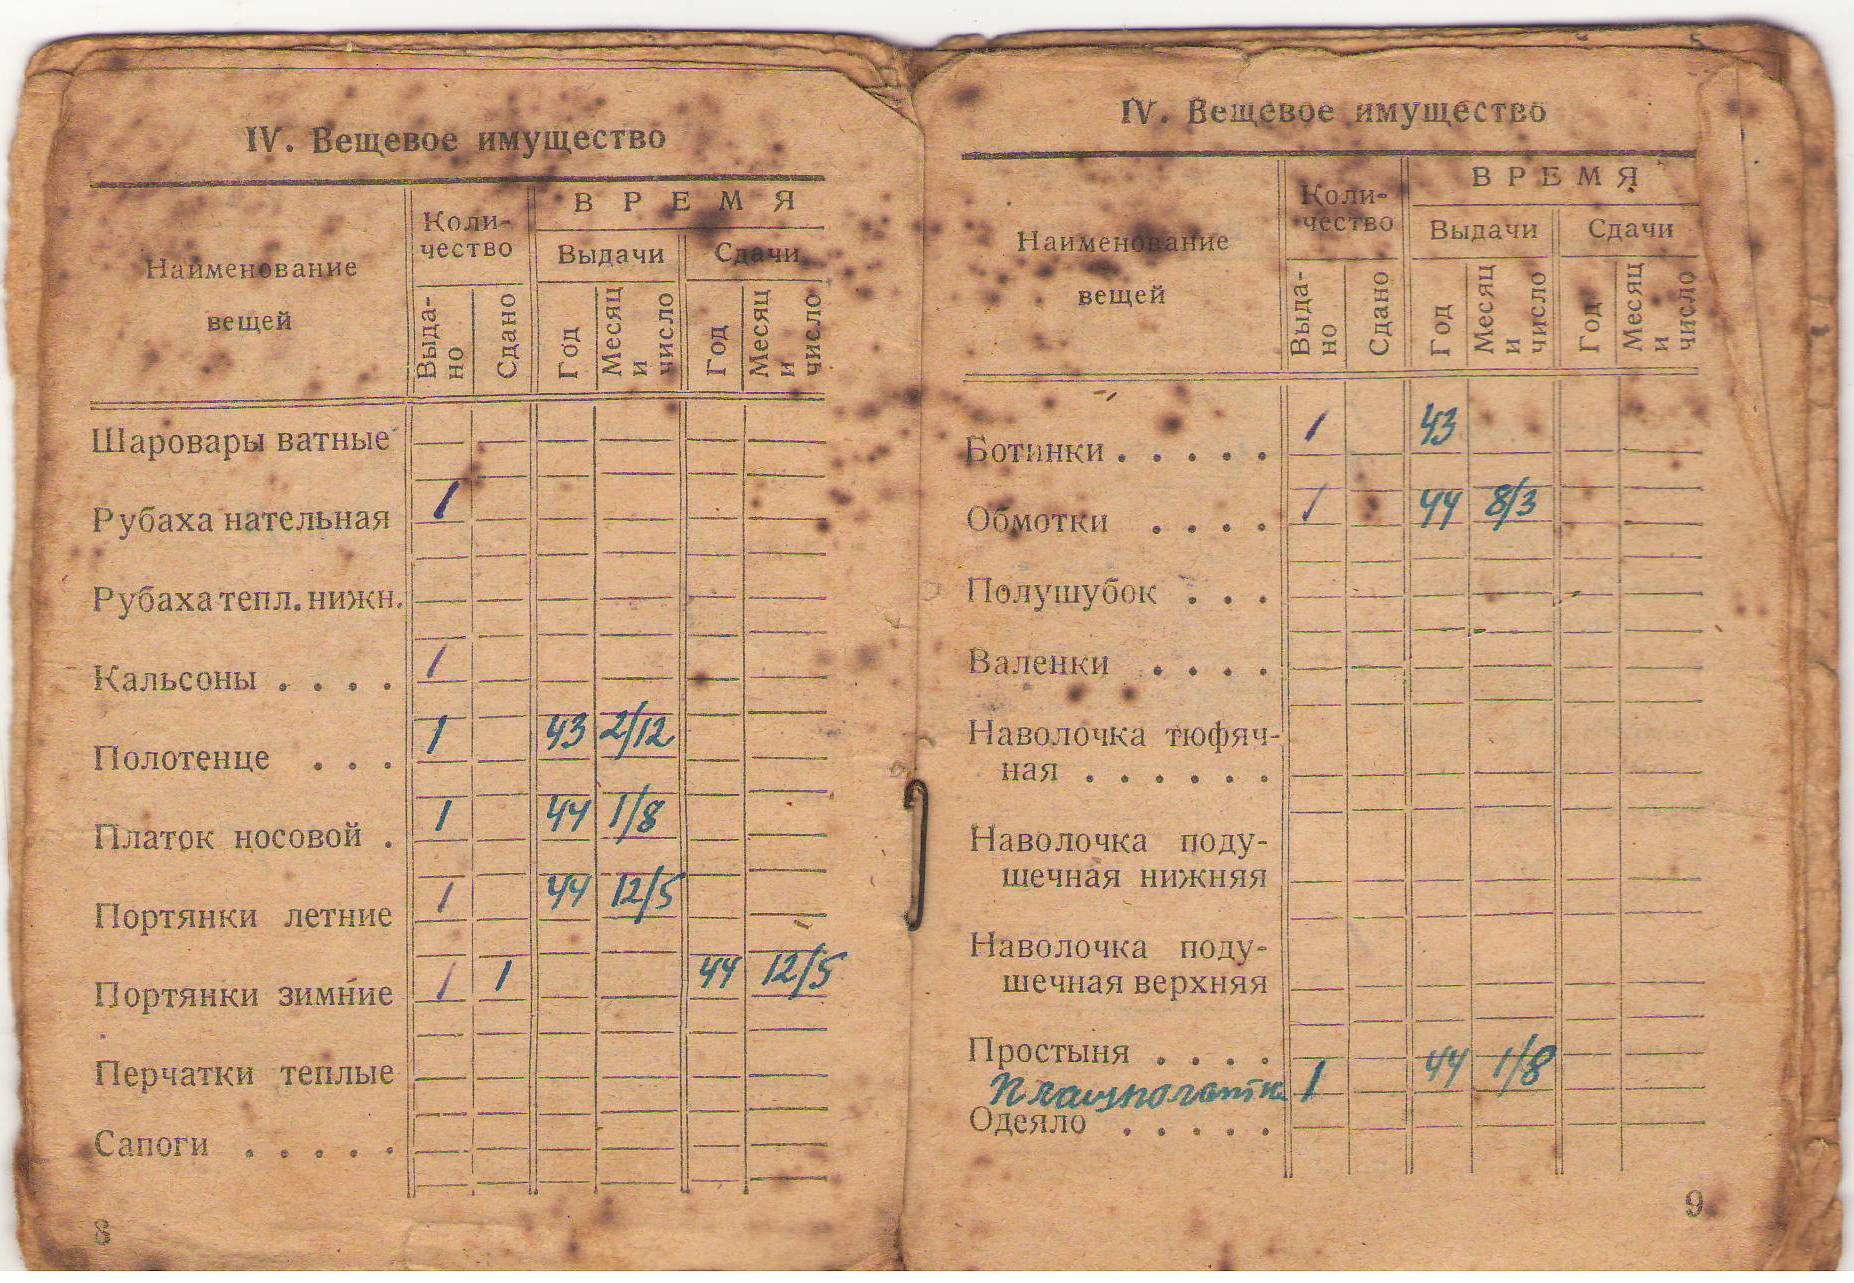 IV. Вещевое имущество
Наименование вещей
Коли-
чество
ВРЕМЯ
Выдачи
Сдачи
Выда-
но
Сдано
Год
Месяц
и
число
Год
Месяц
и
число
Шаровары ватные
Рубаха нательная 1
Рубаха тепл. нижн.
Кальсоны . . . . 1
Полотенце . . . 1 43 2/12
Платок носовой . 1 44 1/8
Портянки летние 1 44 12/5
Портянки зимние 1 1 44 12/5
Перчатки теплые
Сапоги . . . . .
8
IV. Вещевое имущество
Наименование
вещей
Коли-
чество
ВРЕМЯ
Выдачи
Сдачи
Выда-
но
Сдано
Год
Месяц
и
число
Год
Месяц
и
число
Ботинки . . . . . 1 43
Обмотки . . . . 1 44 8/3
Полушубок . . .
Валенки . . . .
Наволочка тюфяч-
ная . . . . . .
Наволочка поду-
шечная нижняя
Наволочка поду-
шечная верхняя
Простыня . . . .
1 44 1/8
Одеяло . . . . .
9